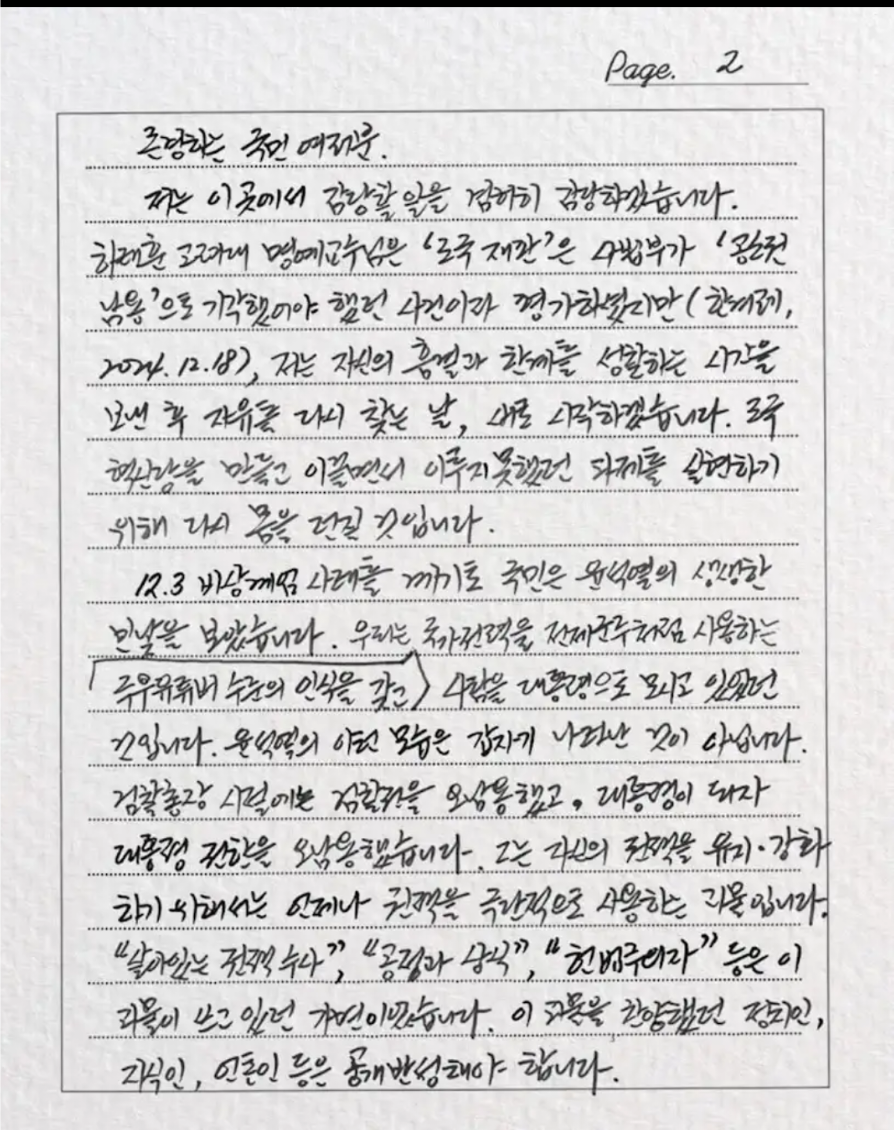 Page. 2
존경하는 국민 여러분.
저는 이곳에서 감당할 일을 겸허히 감당하겠습니다.
하태훈 고려대 명예교수님은 '조국 재판'은 사법부가 '공소권
남용'으로 기각했어야 했던 사건이라 평가하셨지만(한겨레,
2024. 12. 18), 저는 자신의 흠결과 한계를 성찰하는 시간을
보낸 후 자유를 다시 찾는 날, 새로 시작하겠습니다. 조국
혁신당을 만들고 이끌면서 이루지 못했던 과제를 실현하기
위해 다시 몸을 던질 것입니다.
12.3 비상계엄 사태를 계기로 국민은 윤석열의 생생한
민낯을 보았습니다. 우리는 국가권력을 전제군주처럼 사용하는
극우유튜버 수준의 인식을 갖고 사람을 대통령으로 모시고 있었던
것입니다. 윤석열의 이런 모습은 갑자기 나타난 것이 아닙니다.
검찰총장 시절에는 검찰권을 오남용했고, 대통령이 되자
대통령 권한을 오남용했습니다. 그는 자신의 권력을 유지·강화
하기 위해서는 언제나 권력을 극단적으로 사용하는 괴물입니다.
"살아있는 권력 수사", "공정과 상식", "헌법주의자" 등은 이
괴물이 쓰고 있던 가면이었습니다. 이 괴물을 찬양했던 정치인,
지식인, 언론인 등은 공개반성해야 합니다.